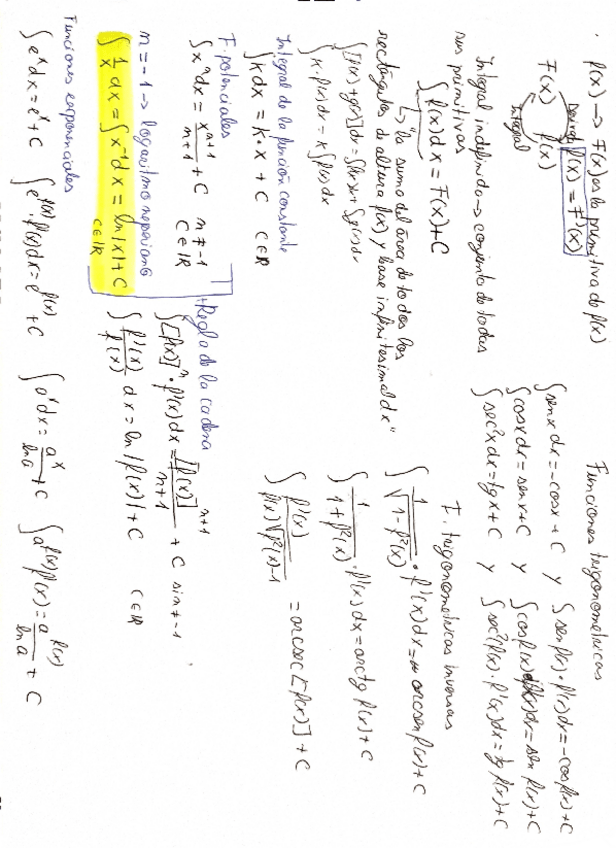 f(x) → F(x) es la primitiva de f(x)
Derivada f(x) = F'(x)
F(x) f(x)
Integral
Integral indefinida → conjunto de todas
sus primitivas
∫ f(x) dx = F(x) + C
↳ "la suma del área de todos los
rectángulos de altura f(x) y base infinitesimal dx"
∫ [f(x) + g(x)] dx = ∫ f(x) dx + ∫ g(x) dx
∫ K · f(x) dx = K ∫ f(x) dx
Integral de la función constante
∫ K dx = K · x + C C ∈ ℝ
F. potenciales
∫ xⁿ dx = xⁿ⁺¹/n+1 + C n ≠ -1 C ∈ ℝ
n = -1 → logaritmo neperiano
∫ 1/x dx = ∫ x⁻¹ dx = ln |x| + C C ∈ ℝ
+ Regla de la cadena
∫ [f(x)]ⁿ · f'(x) dx = [f(x)]ⁿ⁺¹/n+1 + C si n ≠ -1
∫ f'(x)/f(x) dx = ln |f(x)| + C C ∈ ℝ
Funciones exponenciales
∫ eˣ dx = eˣ + C ∫ e^f(x) · f'(x) dx = e^f(x) + C ∫ aˣ dx = aˣ/ln a + C ∫ a^f(x) f'(x) = a^f(x)/ln a + C
Funciones trigonométricas
∫ sen x dx = -cos x + C y ∫ sen f(x) · f'(x) dx = -cos f(x) + C
∫ cos x dx = sen x + C y ∫ cos f(x) f'(x) dx = sen f(x) + C
∫ sec² x dx = tg x + C y ∫ sec² f(x) · f'(x) dx = tg f(x) + C
F. trigonométricas inversas
∫ 1/√1-f²(x) · f'(x) dx = arcsen f(x) + C
∫ 1/1+f²(x) · f'(x) dx = arctg f(x) + C
∫ f'(x)/f(x)√f²(x)-1 = arcsec [f(x)] + C